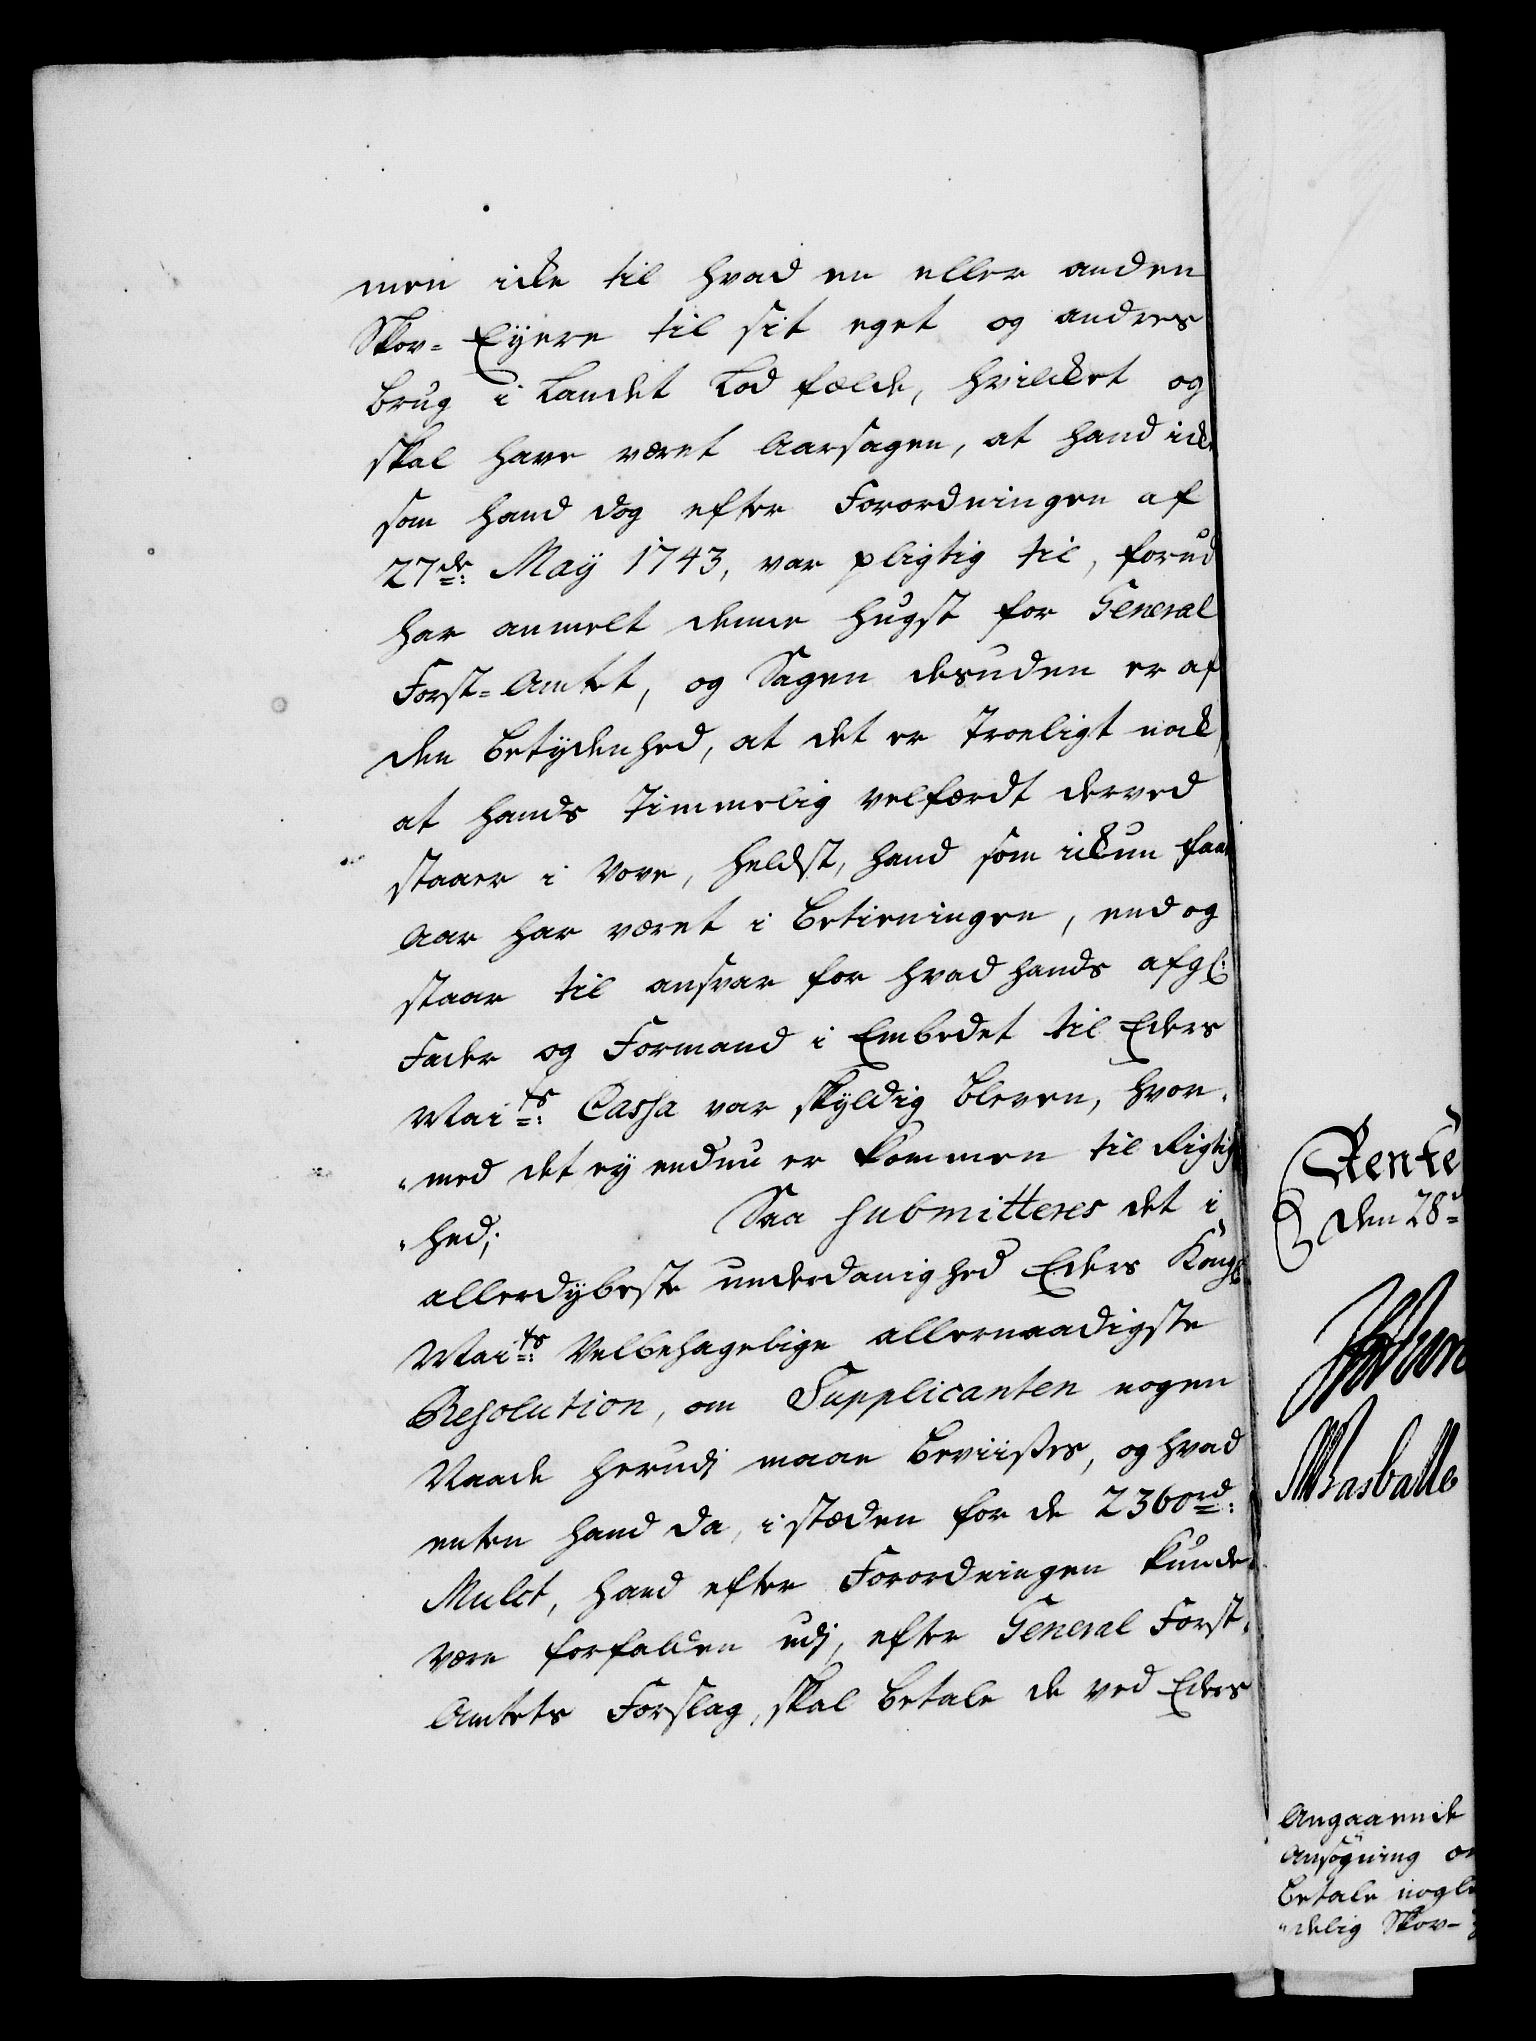 men icke til hvad en eller anden
Skov= Eyere til sit eget og andres
brug i Landet Lod fælde, hvilcket og
skal have været Aarsagen, at hand icke
som hand dog efter Forordningen af
27de: May 1743, var pligtig til, forud
har anmelt denne hugst for General
Forst=Amtet, og Sagen desuden er af
den betydenhed, at det er Troeligt nock,
at hands Timmelig velfærdt derved
staaer i Vove, heldst, hand som ickun faae
Aar har været i betieningen, end og
staar til ansvar for hvad hands afgl:
Fader og Formand i Embedet til Eders
Maits: Cassa var skyldig bleven, hvor,
„med det ey endnu er kommen til Rigtig
„hed; Saa submitteres det i
allerdybeste underdanighed Eders Kongl
Maits: Velbehagelige allernaadigste
Resolution, om Supplicanten nogen
Naade herudj maae beviises, og hvad
enten hand da, i stæden for de 2360rd:
Mulct, hand efter Forordningen kunde
være forfalden udj, efter General Forst,
Amtets Forslag, skal betale de ved Eders
Rente
den 28
Masballe
Angaaende
Ansøgning om
betale nogle
„delig Skov-